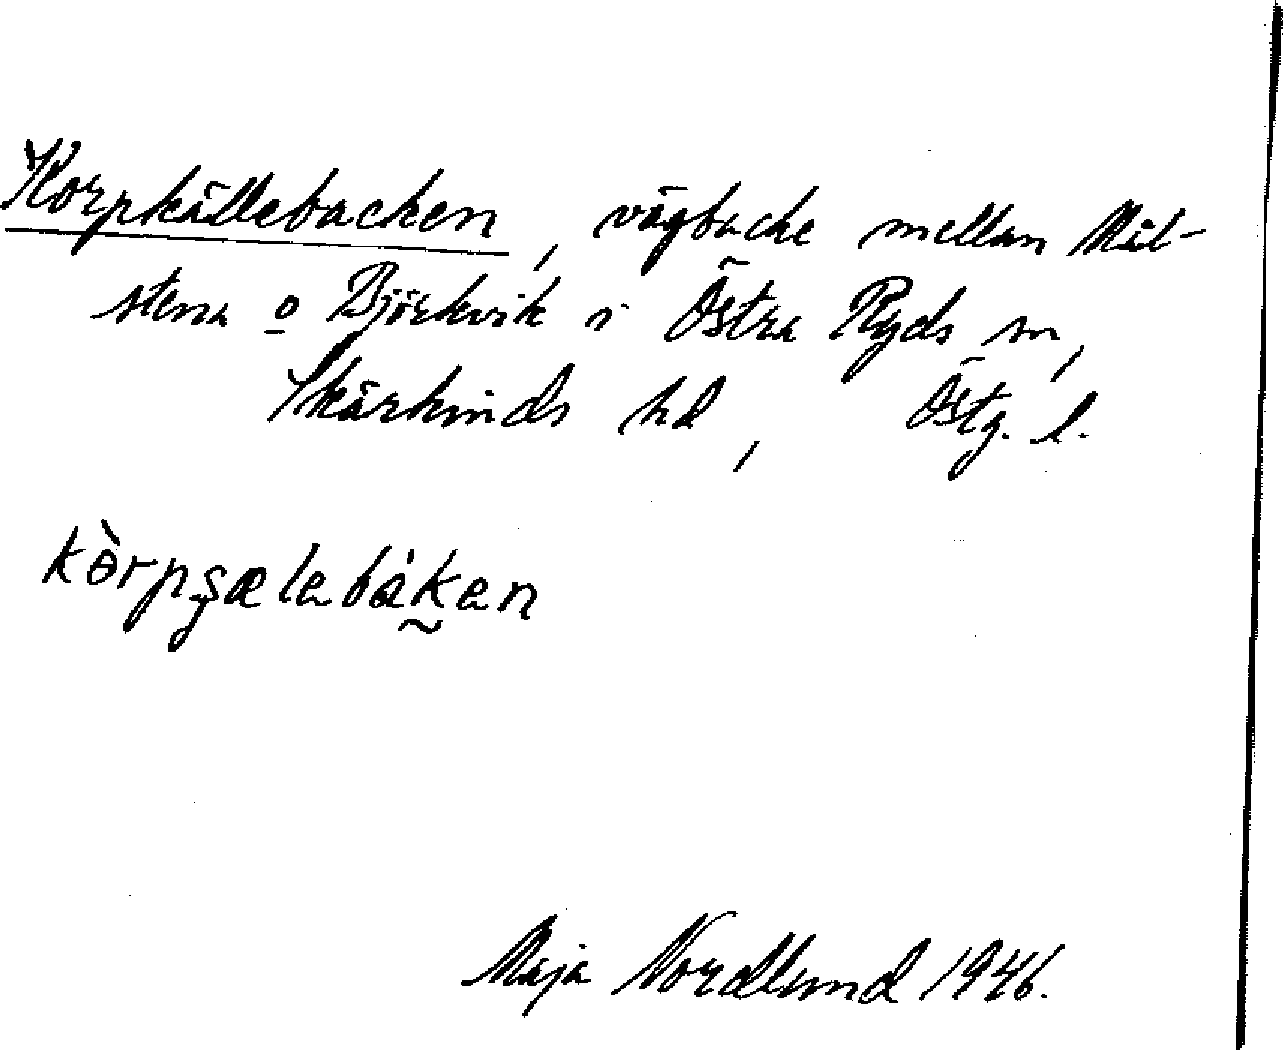 Korpkällebacken, vägbacke mellan Mil-
stena o Björkvik i Östra Ryds sn,
Skärkinds hd, Östg. l.
kòrpşælebàken
Maja Nordlund 1946.